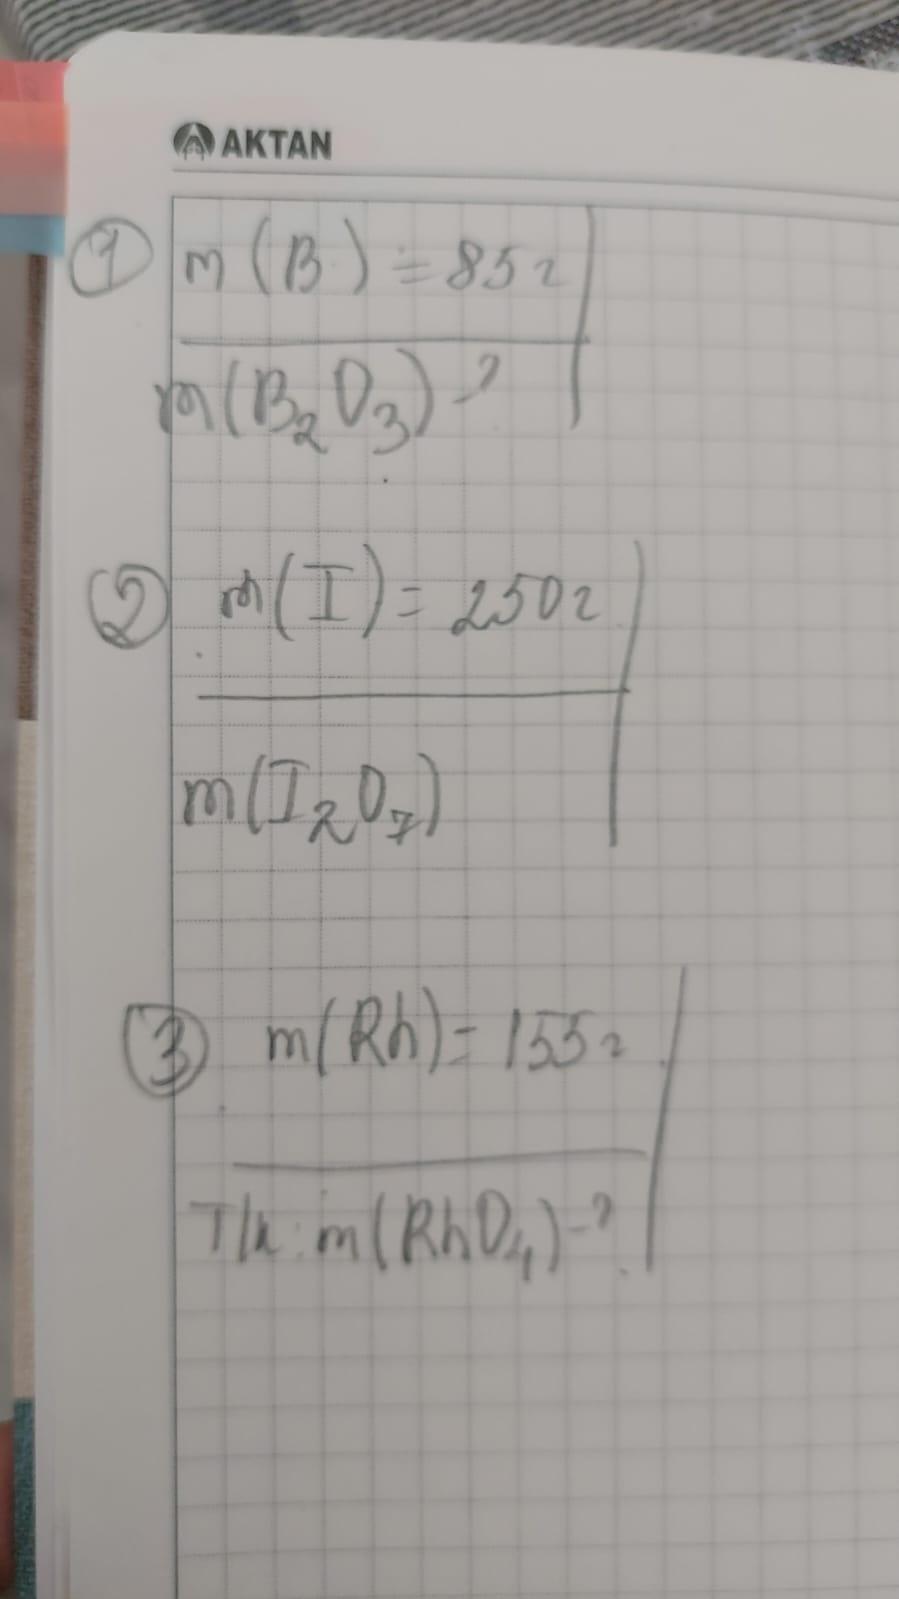 AKTAN
① m(B) = 85г
m(B₂O₃) - ?
② m(I) = 250г
m(I₂O₇)
③ m(Rh) = 155г
Т/к: m(RhO₄) - ?